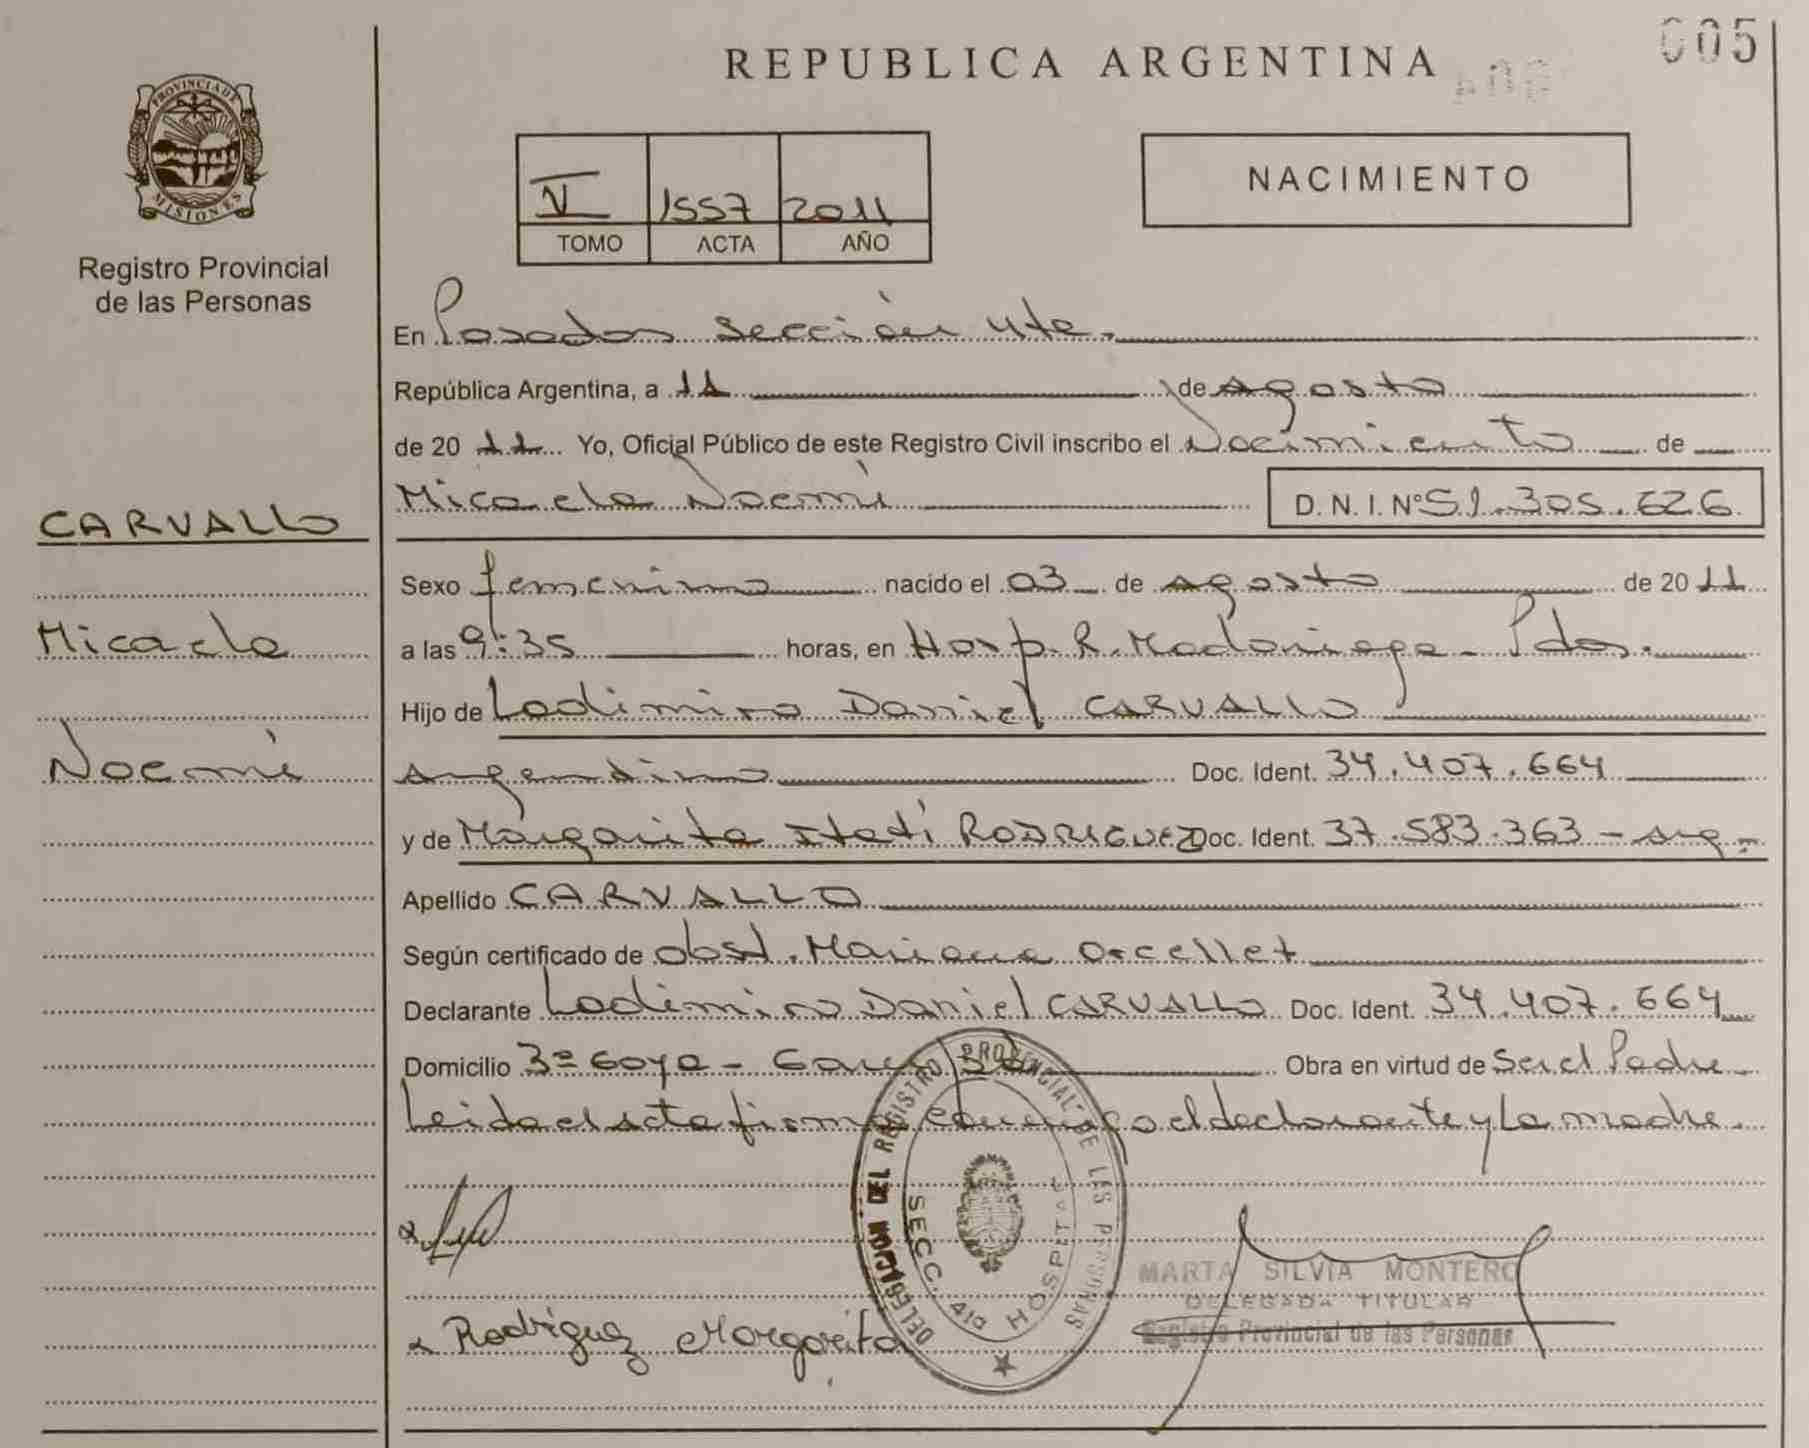 REPUBLICA ARGENTINA
005
PROVINCIA DE
MISIONES
Registro Provincial
de las Personas
V 1557 2011
TOMO ACTA AÑO
NACIMIENTO
En Posadas sección 4ta.
República Argentina, a 11 de agosto
de 20 11 Yo, Oficial Público de este Registro Civil inscribo el Nacimiento de
Micaela Noemí D. N. I. Nº 51.305.626
CARVALLO
Micaela
Noemí
Sexo femenino nacido el 03 de agosto de 20 11
a las 9:35 horas, en Hosp. R. Madariaga - Pdas.
Hijo de Ladimiro Daniel CARVALLO
argentino Doc. Ident. 34.407.664
y de Margarita Itatí RODRIGUEZ Doc. Ident. 37.583.363 - arg.-
Apellido CARVALLO
Según certificado de obst. Mariana Orcellet
Declarante Ladimiro Daniel CARVALLO Doc. Ident. 34.407.664
Domicilio 3º Goya - Obra en virtud de Ser el Padre
Leida el acta firma conmigo el declarante y la madre.
DELEGACION DEL REGISTRO PROVINCIAL DE LAS PERSONAS
SECC. 4ta HOSPITAL
MARTA SILVIA MONTERO
DELEGADA TITULAR
Registro Provincial de las Personas
Rodríguez Margarita